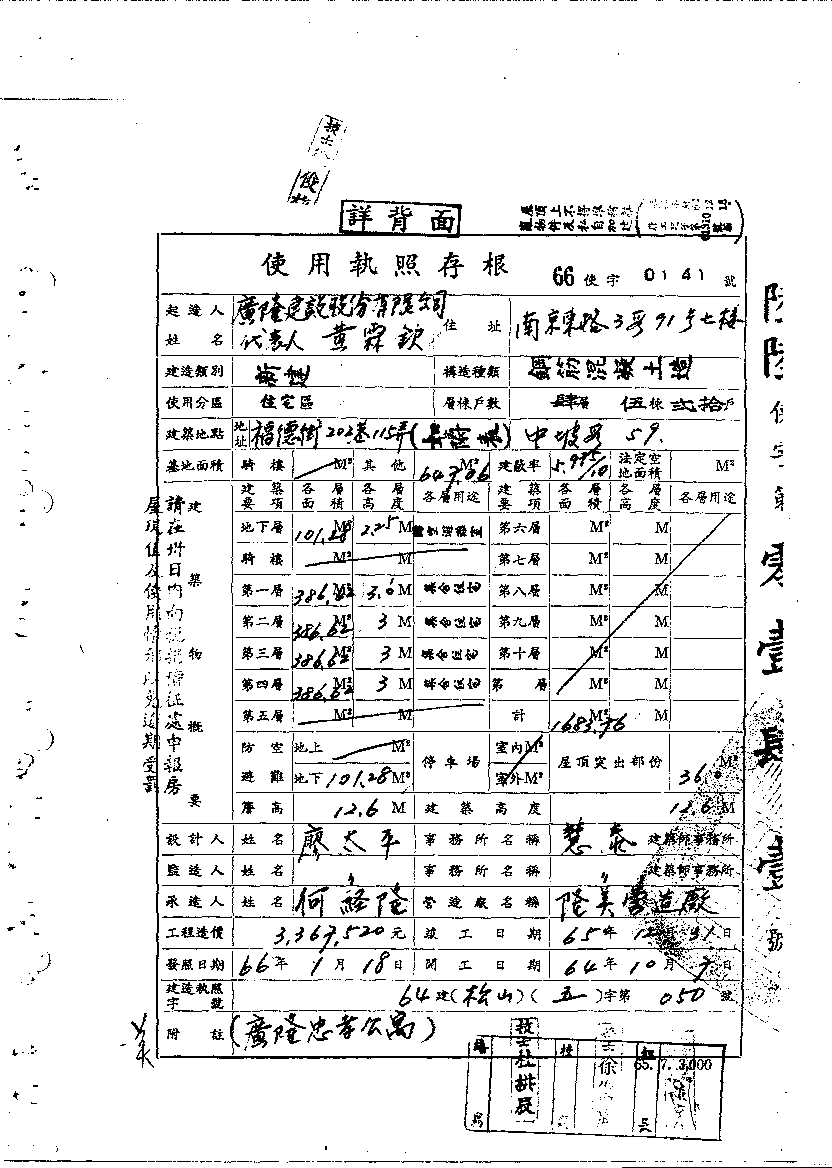 技士
詳背面
屋頂上不得
使用執照存根
66使字0141號
起造人姓名
廣隆建設股份有限公司
代表人 黃霖欽
住址
南京東路3段91号七樓
建造類別 新建 構造種類 鋼筋混凝土造
使用分區 住宅區 層棟戶數 肆層 伍棟 貳拾戶
建築地點 地址 福德街202巷115弄( ) 中坡段 59.
基地面積 騎樓 M² 其他 647.06 M² 建蔽率 5.975/10 法定空地面積 M²
建築物概要
建築要項 各層面積 各層高度 各層用途 建築要項 各層面積 各層高度 各層用途
地下層 101.28 M² 2.25 M 第六層 M² M
騎樓 M² M 第七層 M² M
第一層 386.62 M² 3.0 M 集合住宅 第八層 M² M
第二層 386.62 3 M 集合住宅 第九層 M² M
第三層 386.62 M² 3 M 集合住宅 第十層 M² M
第四層 386.62 M² 3 M 集合住宅 第 層 M² M
第五層 M² M 計 1683.76 M² M
防空避難 地上 M² 地下 101.28 M² 停車場 室內M² 室外M² 屋頂突出部份 36.0 M²
簷高 12.6 M 建築高度 12.6 M
設計人 姓名 廖太平 事務所名稱 慧泰 建築師事務所
監造人 姓名 〃 事務所名稱 〃 建築師事務所
承造人 姓名 何經隆 營造廠名稱 隆美營造廠
工程造價 3,367,520元 竣工日期 65年12月31日
發照日期 66年1月18日 開工日期 64年10月7日
建造執照字號 64建(松山)(五)字第050號
附註 (廣隆忠孝公寓)
請在卅日內向稅捐稽征處申報房
屋現值及使用情形以免逾期受罰
使字第
零壹肆壹
號
技士杜拱辰
65.7.3,000